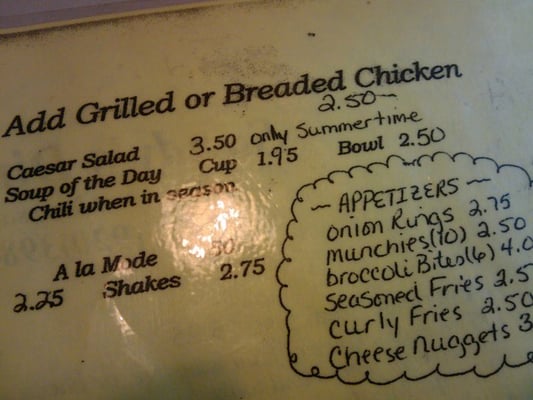 Add Grilled or Breaded Chicken
2.50
Caesar Salad 3.50 only Summertime
Soup of the Day Cup 1.95 Bowl 2.50
Chili when in season
A la Mode .50
2.25 Shakes 2.75
~ APPETIZERS ~
onion Rings 2.75
munchies (10) 2.50
broccoli Bites (6) 4.0
Seasoned Fries 2.5
Curly Fries 2.50
Cheese Nuggets 3